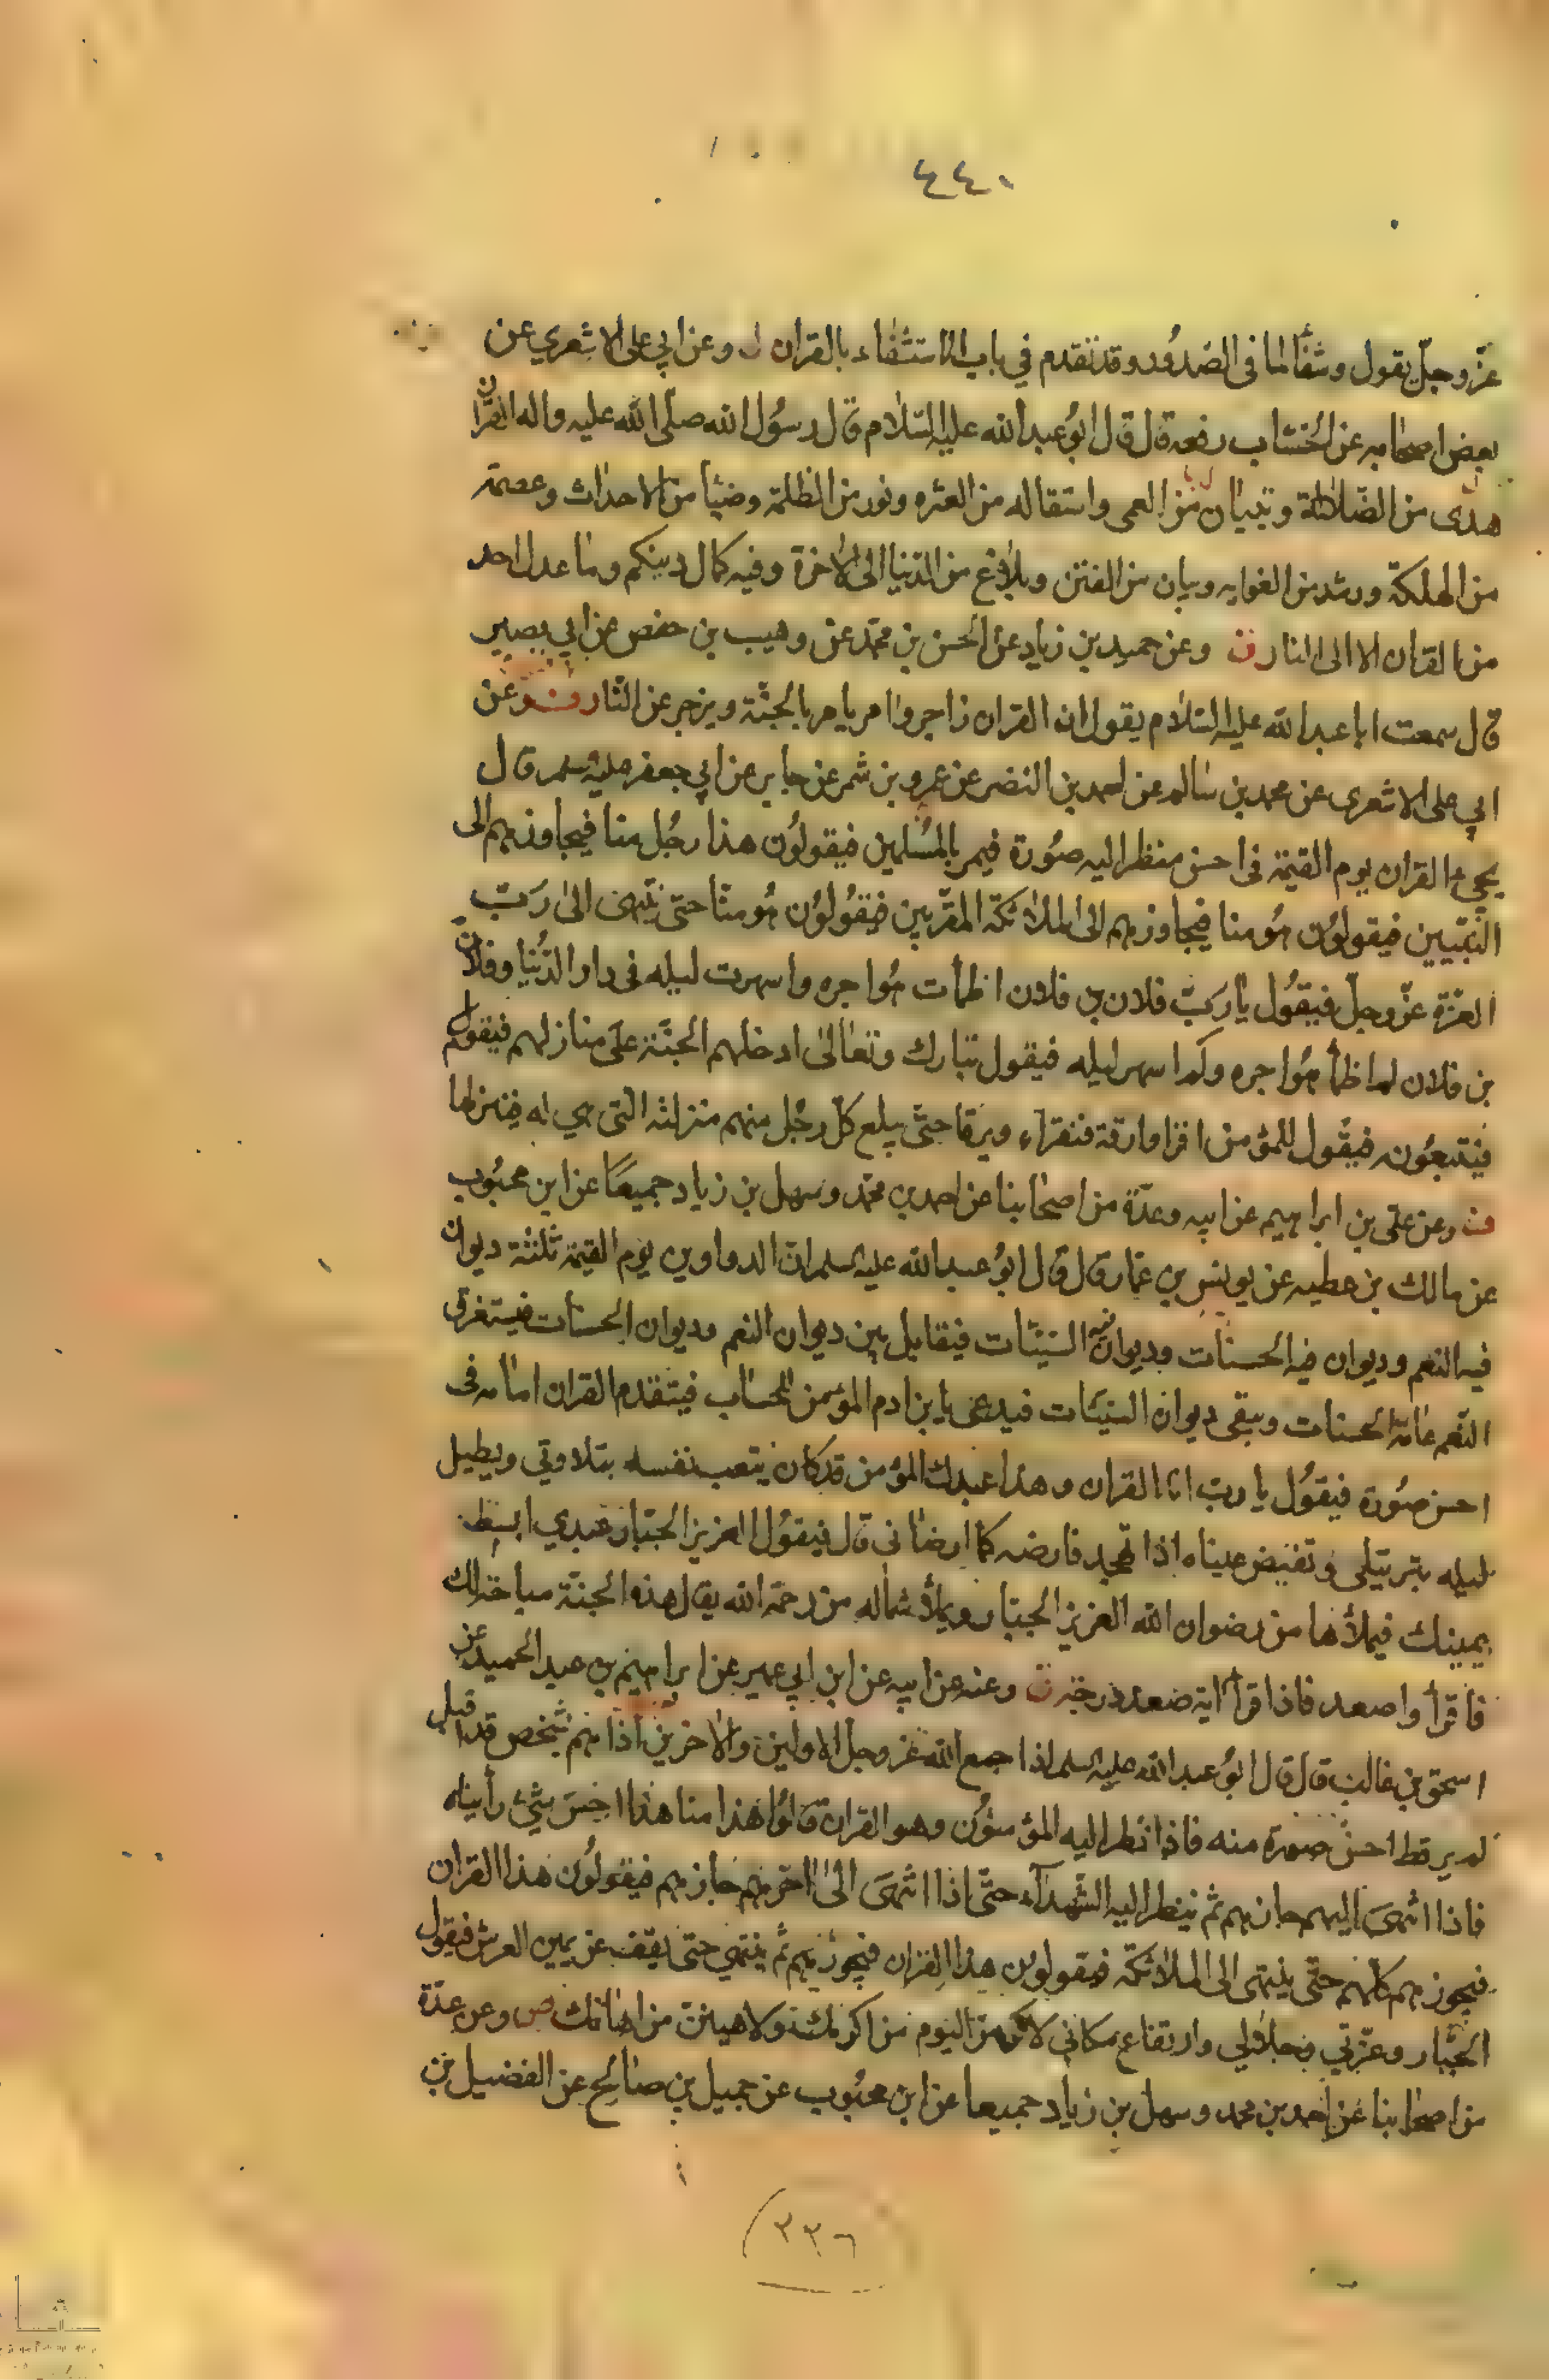 ٤٤٠
عزّ وجلّ يقول وشفاء لما فى الصدور وقد تقدم في باب الاستشفاء بالقران ل وعن ابي على الاشعري عن
بعض اصحابه عن الخشاب رفعه قال قال ابو عبد الله عليه السلام قال رسول الله صلّى الله عليه واله القران
هدى من الضلالة وتبيان من العمى واستقاله من العثره ونور من الظلمة وضيأ من الاحداث وعصمة
من الهلكة ورشد من الغوايه وبيان من الفتن وبلاغ من الدنيا الى الاخرة وفيه كمال دينكم وما عدل احد
من القران الا الى النار ن وعن حميد بن زياد عن الحسن بن محمد عن وهيب بن حفص عن ابي بصير
قال سمعت ابا عبد الله عليه السلام يقول ان القران زاجر وامر يامر بالجنّة ويزجر عن النار ن وعن
ابي على الاشعرى عن محمد بن سالم عن احمد بن النضر عن عمرو بن شمر عن جابر عن ابي جعفر عليه سلم قال
يجيء القران يوم القيمة فى احسن منظر اليه صورة فيمر بالمسلمين فيقولون هذا رجل منا فيجاوزهم الى
النبيّين فيقولون هو منا فيجاوزهم الى الملائكة المقرّبين فيقولون هو منا حتى ينتهى الى ربّ
العزّة عزّ وجلّ فيقول يا ربّ فلان بن فلان اظمأت هواجره واسهرت ليله فى دار الدنيا وفلان
بن فلان لم اظمأ هواجره ولم اسهر ليله فيقول تبارك وتعالى ادخلهم الجنّة على منازلهم فيقوم
فيتبعونه فيقول للمؤمن اقرا وارقة فنقراء ويرقا حتّى يبلع كلّ رجل منهم منزلته التى هي له فينزلها
ن وعن على بن ابراهيم عن ابيه وعدّة من اصحابنا عن احمد بن محمّد وسهل بن زياد جميعًا عن ابن محبوب
عن مالك بن عطيه عن يونس بن عمّار قال قال ابو عبد الله عليه سلم ان الدواوين يوم القيمة ثلثة ديوان
فيه النعم وديوان فيه الحسنات وديوان فيه السيئات فيقابل بين ديوان النعم وديوان الحسنات فيستغرق
النّعم عامّة الحسنات ويبقى ديوان السيئات فيدعى يا بن ادم المؤمن للحساب فيتقدم القران امامه فى
احسن صورة فيقول يا رب انا القران وهذا عبدك المؤمن قد كان يتعب نفسه بتلاوتي ويطيل
ليله بترتيلى وتفيض عيناه اذا تهجد فارضه كما ارضانى قال فيقول العزيز الجبّار عبدي ابسط
يمينك فيملأها من رضوان الله العزيز الجبّار ويملأ شماله من رحمة الله يقال هذه الجنّة مباحة لك
فاقرأ واصعد فاذا قرأ اية صعد درجة ن وعنه عن ابيه عن ابن ابي عمير عن ابراهيم بن عبد الحميد عن
اسحق بن غالب قال قال ابو عبد الله عليه سلم اذا جمع الله عزّ وجلّ الاولين والاخرين اذا هم بشخص قد اقبل
لم ير قط احسن صورة منه فاذا نظر اليه المؤمنون وهو القران قالوا هذا منا هذا احسن شيئ رأيناه
فاذا انتهى اليهم جازهم ثم ينظر اليه الشهداء حتّى اذا انتهى الى اخرهم جازهم فيقولون هذا القران
فيجوزهم كلّهم حتّى ينتهى الى الملائكة فيقولون هذا القران فيجوزهم ثم ينتهي حتى يقف عن يمين العرش فيقول
الجبّار وعزّتي وجلالي وارتفاع مكاني لاكرمن اليوم من اكرمك ولاهينن من اهانك ص وعن عدّة
من اصحابنا عن احمد بن محمد وسهل بن زياد جميعا عن ابن محبوب عن جميل بن صالح عن الفضيل بن
(٣٣٦)